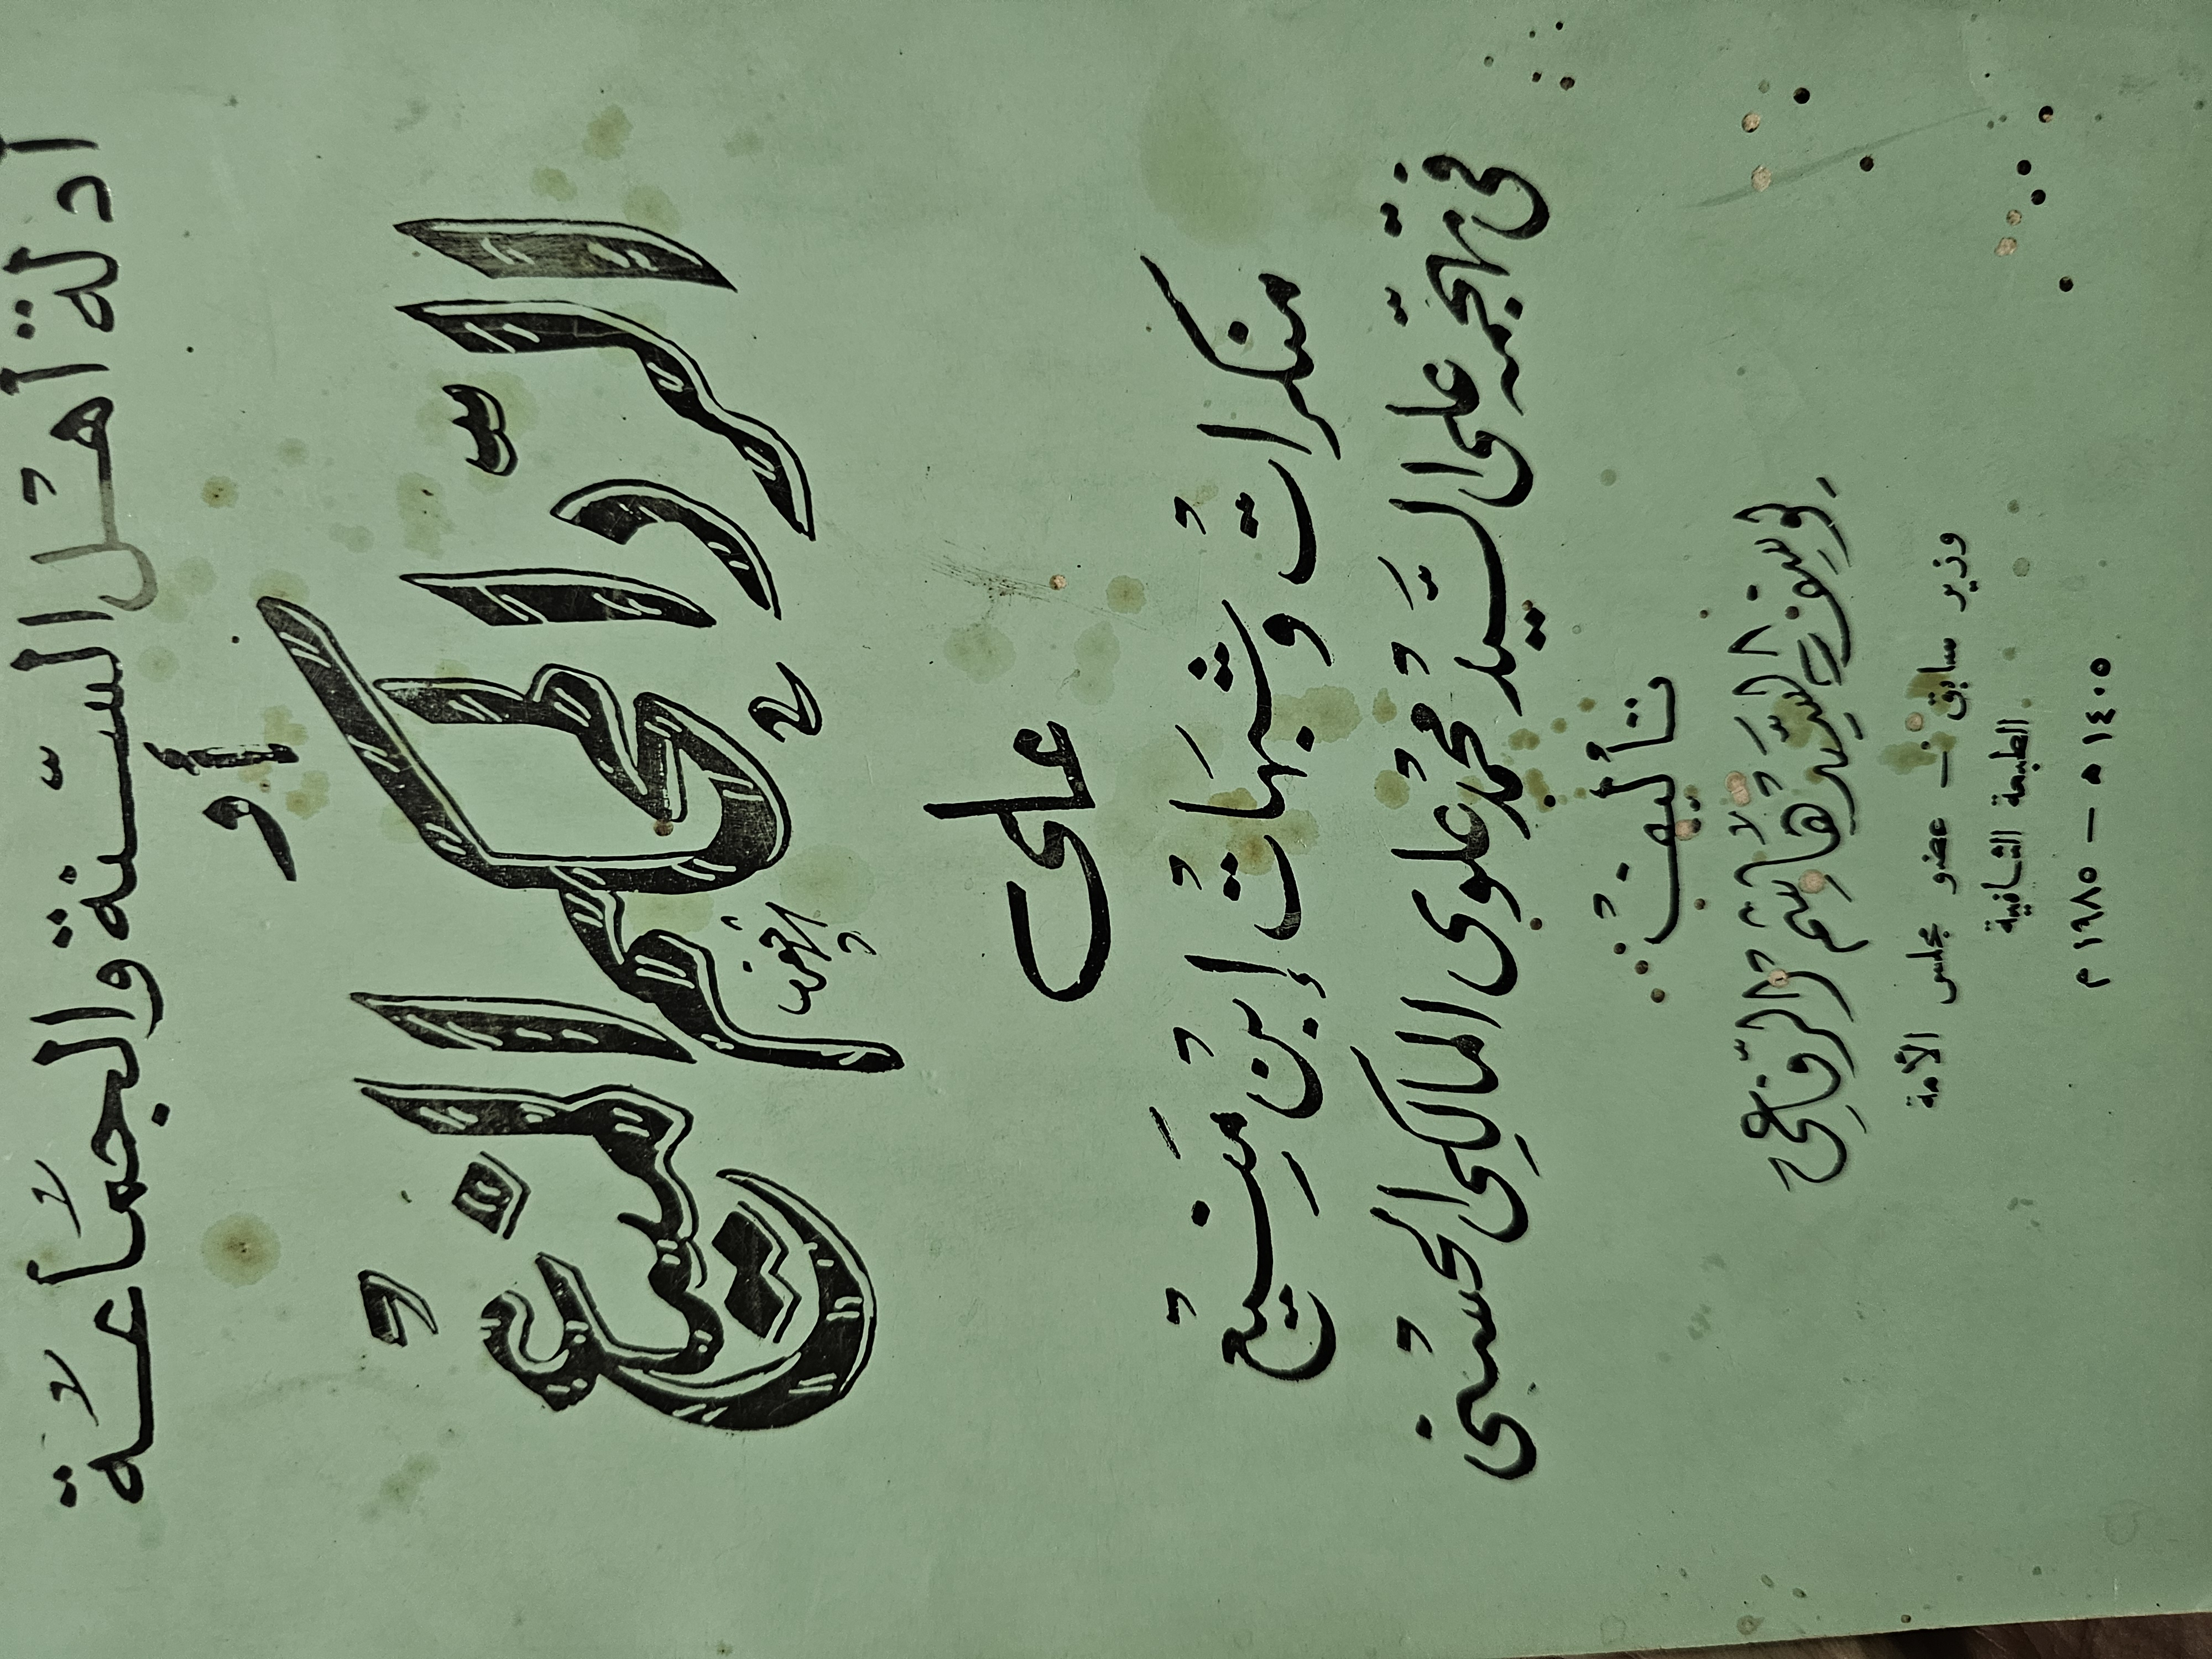 أدلة أهل السّنة والجمَاعَة
أو
الرّد المحكم المنيعُ
على
منكراتُ وشبهَاتُ إبنُ مَنِيعُ
في تهجّمه على السَّيدُ محمدُ علوي المالكِي الحسُني
تأليفُ
يوسف السَّيدُ هَاشِم الرّفاعي
وزير سابق - عضو مجلس الأمة
الطبعة الثانية
١٤٠٥ هـ - ١٩٨٥ م